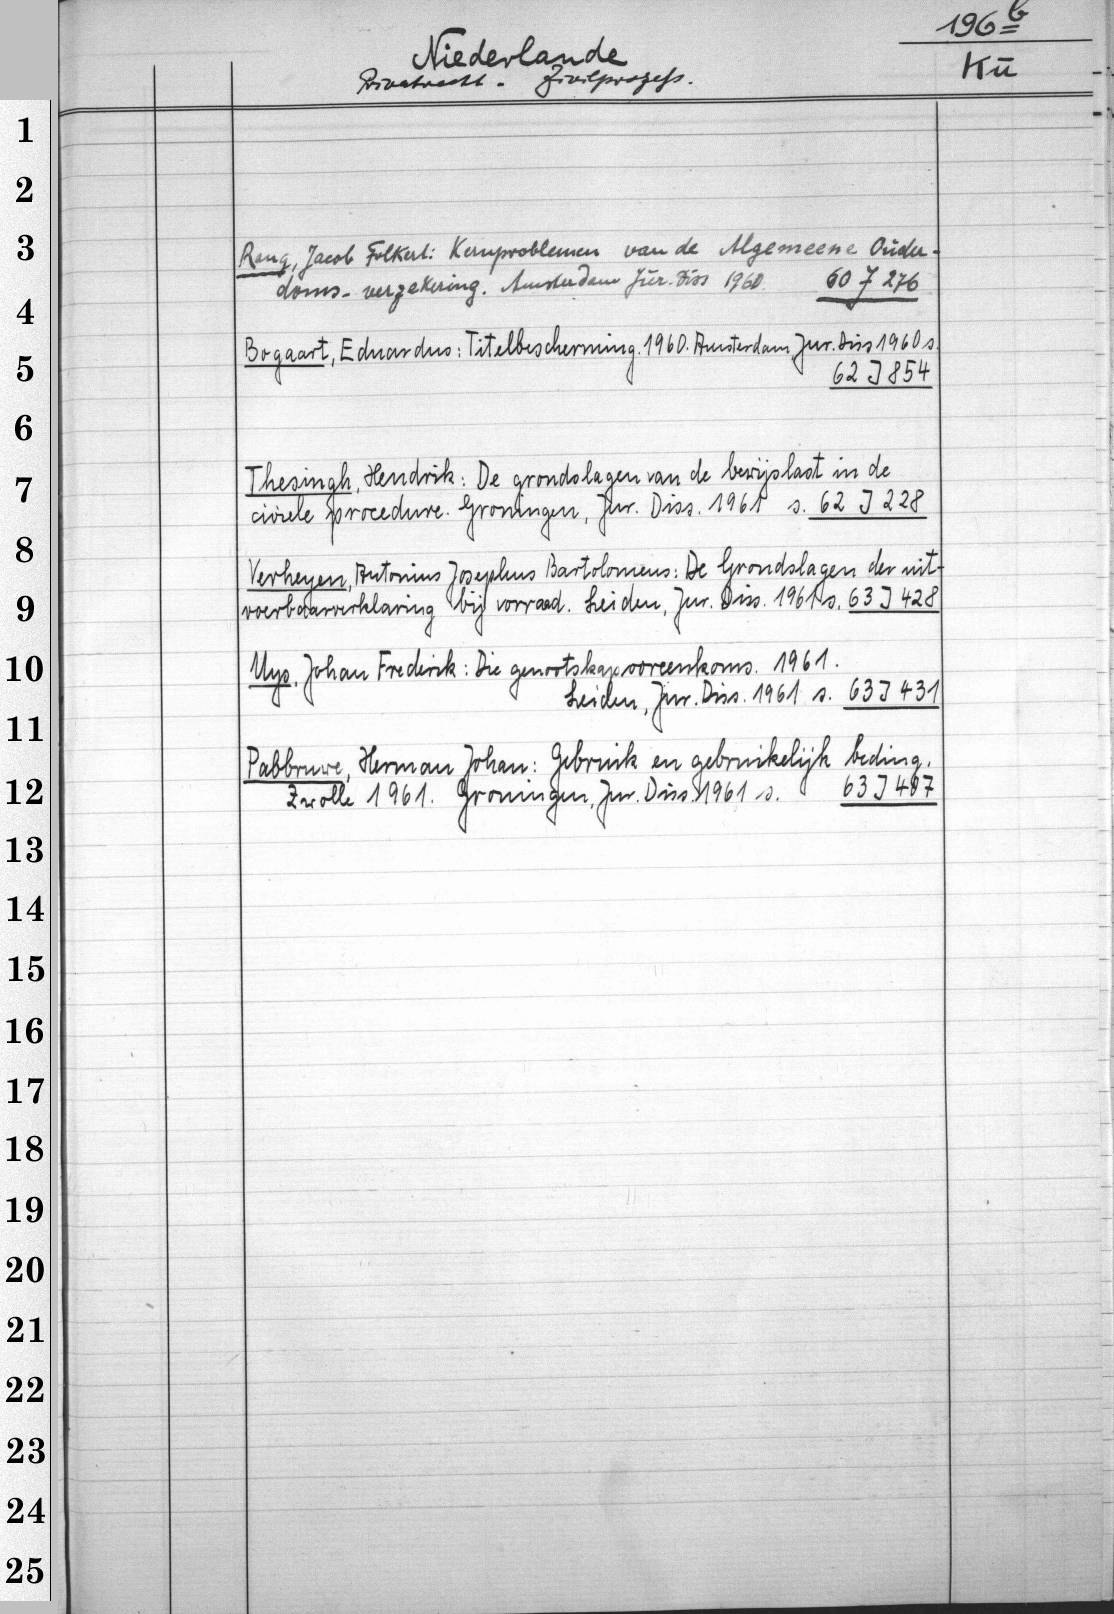 196 b
Niederlande
Kü
Privatrecht - Zivilprozeß.
1
2
3 Rang, Jacob Folkert: Kernproblemen van de Algemeene Ouder-
doms- verzekering. Amsterdam Jur. Diss 1960. 60 J 276
4
Bogaart, Eduardus: Titelbescherming. 1960. Amsterdam, Jur. Diss 1960 s.
5 62 J 854
6
Thesingh, Hendrik: De grondslagen van de bewijslast in de
7
civiele procedure. Groningen, Jur. Diss. 1961 s. 62 J 228
8
Verheyen, Antonius Josephus Bartolomeus: De Grondslagen der uit-
9 voerbaarverklaring bij vorraad. Leiden, Jur. Diss. 1961 s. 63 J 428
10 Uys, Johan Frederik: Die genootskapooreenkoms. 1961.
Leiden, Jur. Diss. 1961 s. 63 J 431
11
Pabbruwe, Herman Johan: Gebruik en gebruikelijk beding.
12 Zwolle 1961. Groningen, Jur. Diss. 1961 s. 63 J 487
13
14
15
16
17
18
19
20
21
22
23
24
25